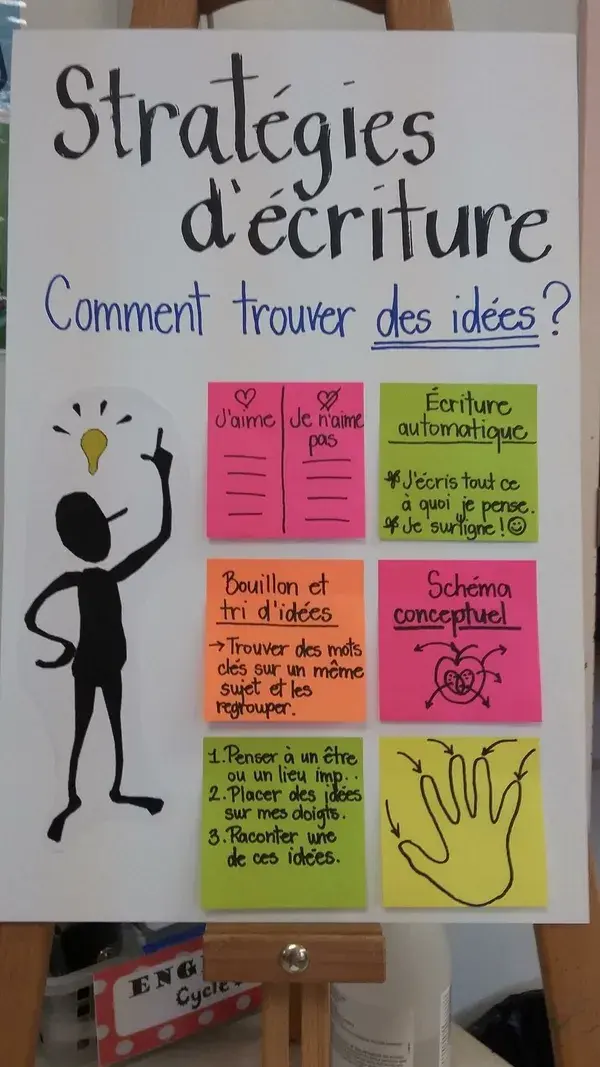 Stratégies
d'écriture
Comment trouver des idées?
J'aime
Je n'aime
pas
Écriture
automatique
J'écris tout ce
à quoi je pense.
Je surligne!
Bouillon et
tri d'idées
→Trouver des mots
clés sur un même
sujet et les
regrouper.
Schéma
conceptuel
1. Penser à un être
ou un lieu imp..
2. Placer des idées
sur mes doigts.
3. Raconter une
de ces idées.
ENG
Cycle